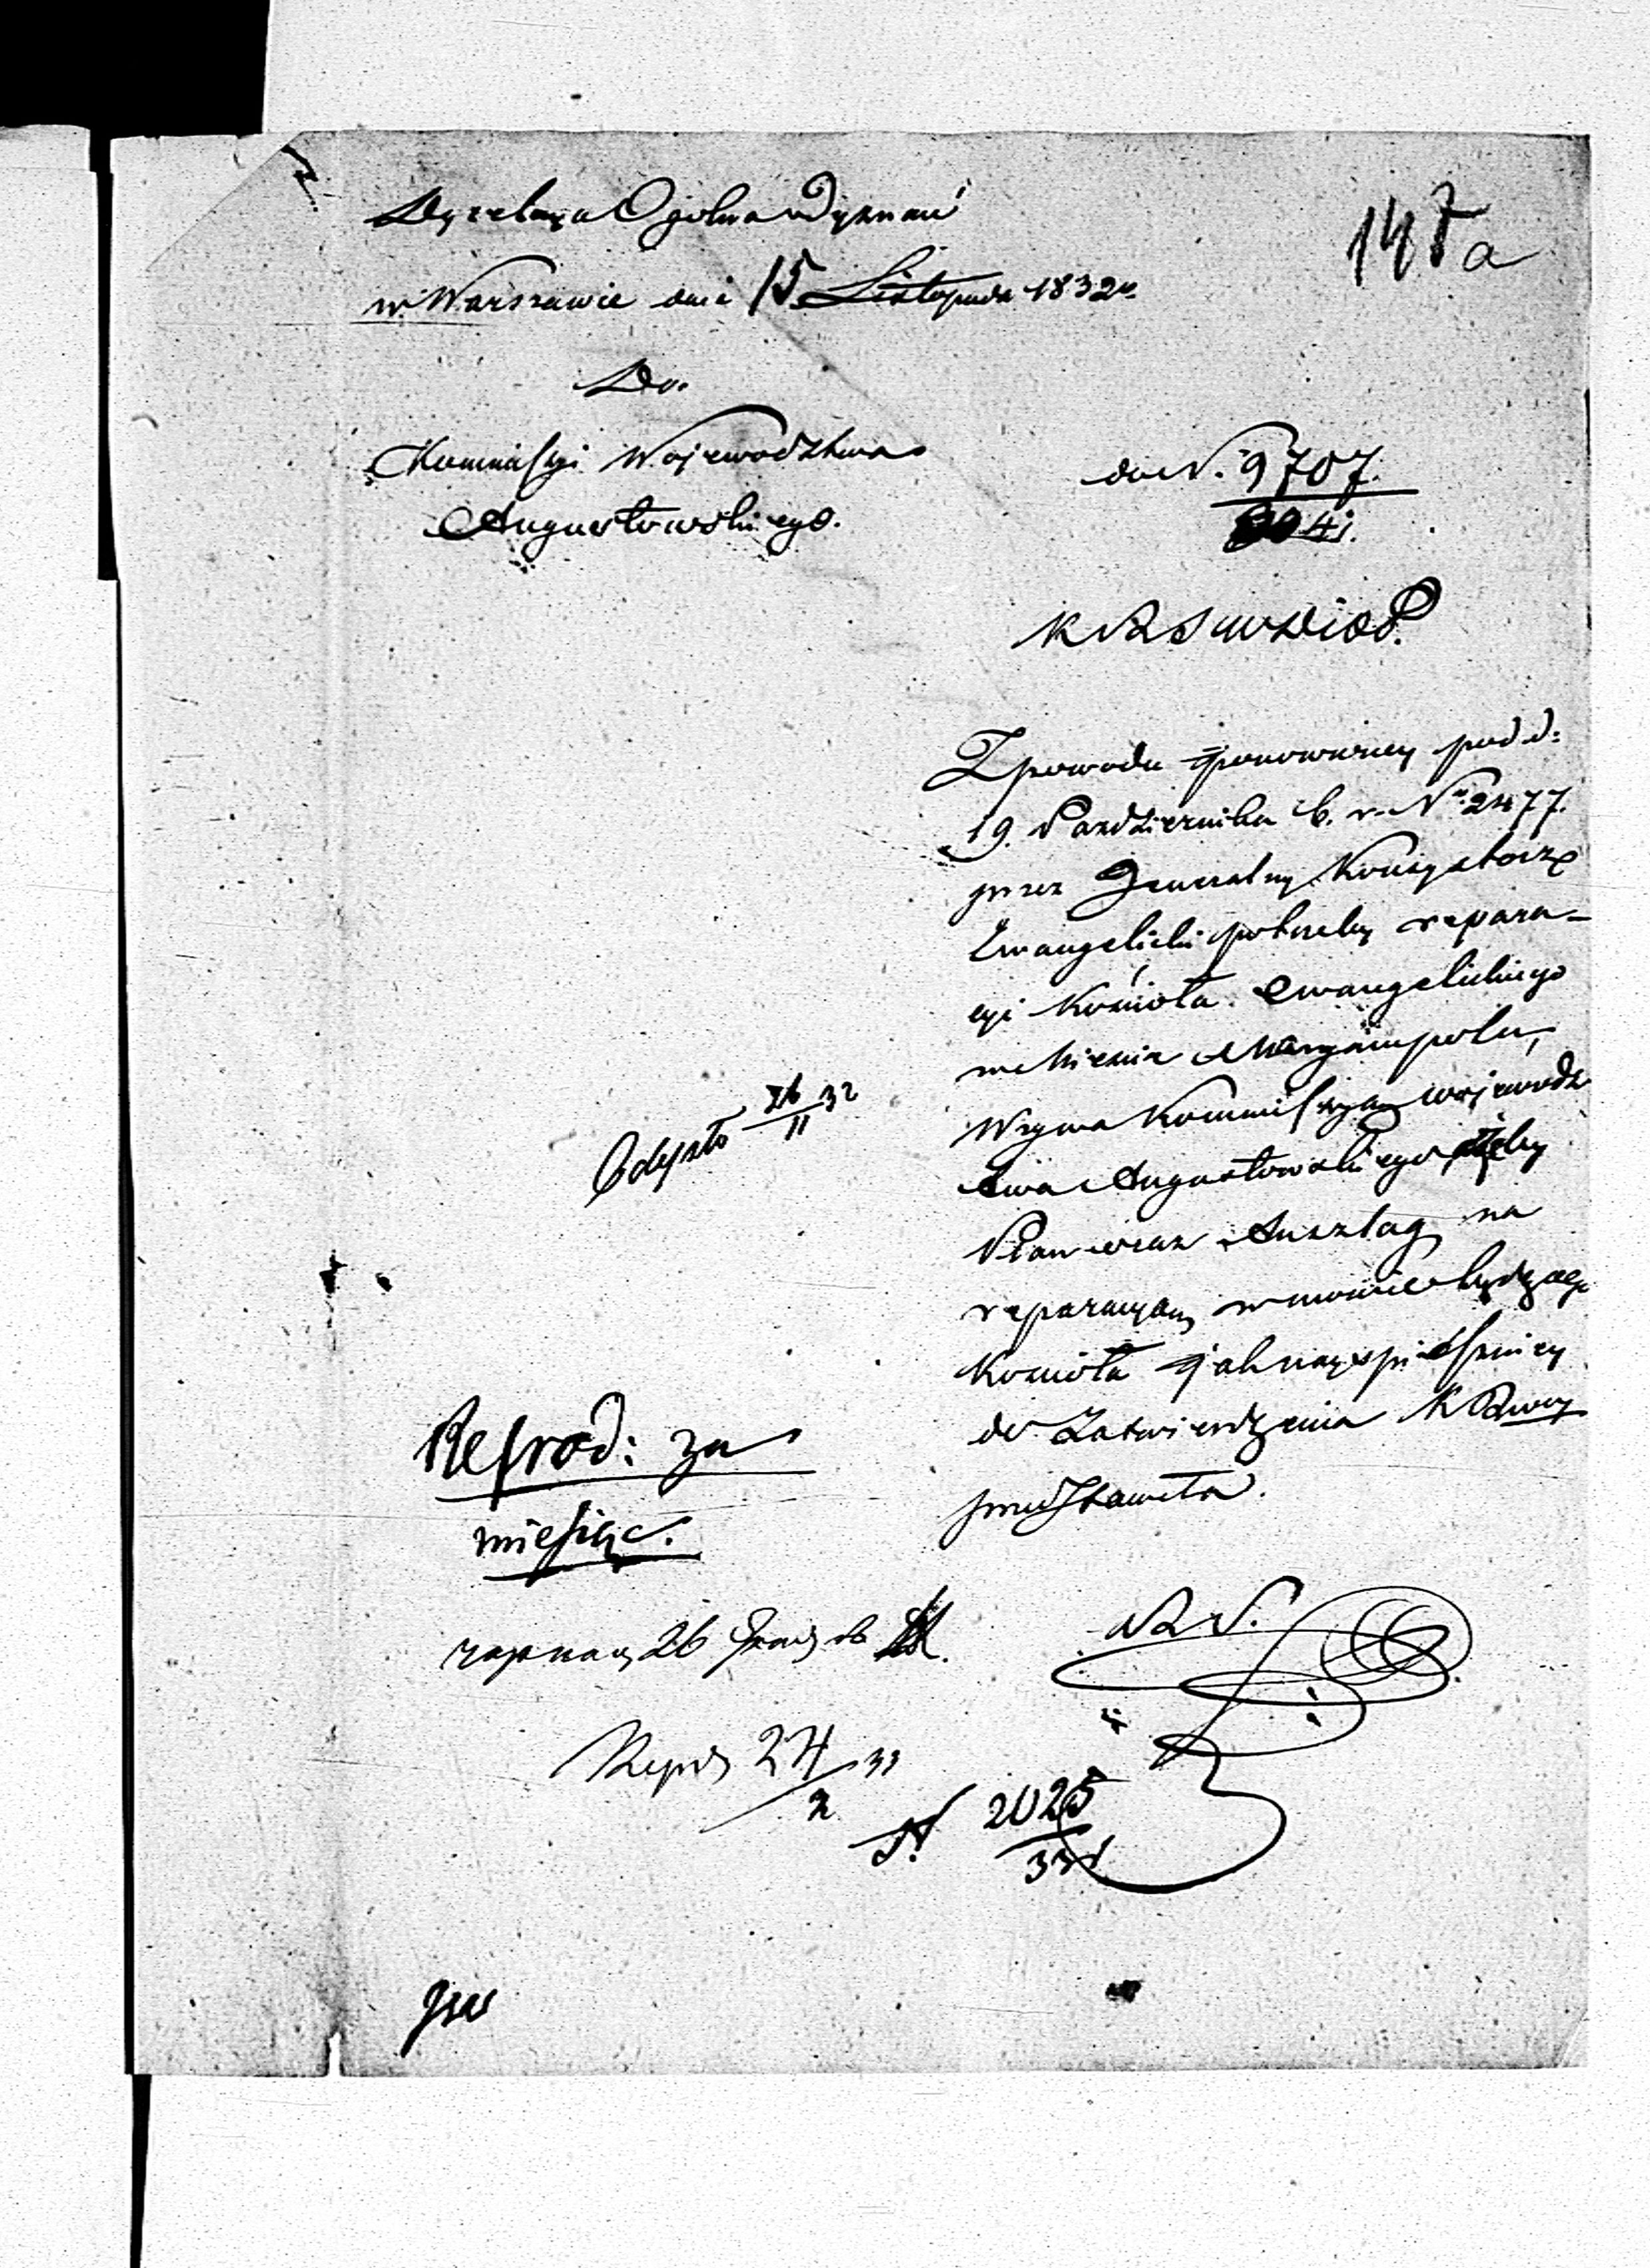 147a
Dyrekcya Ogólna Wyznań
w Warszawie dnia 15 Listopada 1832 r.
Do
Kommissyi Województwa
Augustowskiego.
do N. 9707.
41.
K R S W D i O P.
Z powodu ponowioney pod d:
19. Października b. r. N° 2477.
przez Generalny Konsystorz
Ewangelicki potrzeby repara-
cyi Kościoła Ewangelickiego
w Mieście Maryampolu,
Wzywa Kommissyą Wojewódz-
twa Augustowskiego ażeby
Plan wraz Anszlag na
reparacyą w mowie będącego
Kościoła jak nayspieszniey
do Zatwierdzenia K Rwey
przedstawiła.
Odeszło 26/11 32
Reprod: za
miesiąc.
26
D N.
Repr 24/2 33
N 2025
33